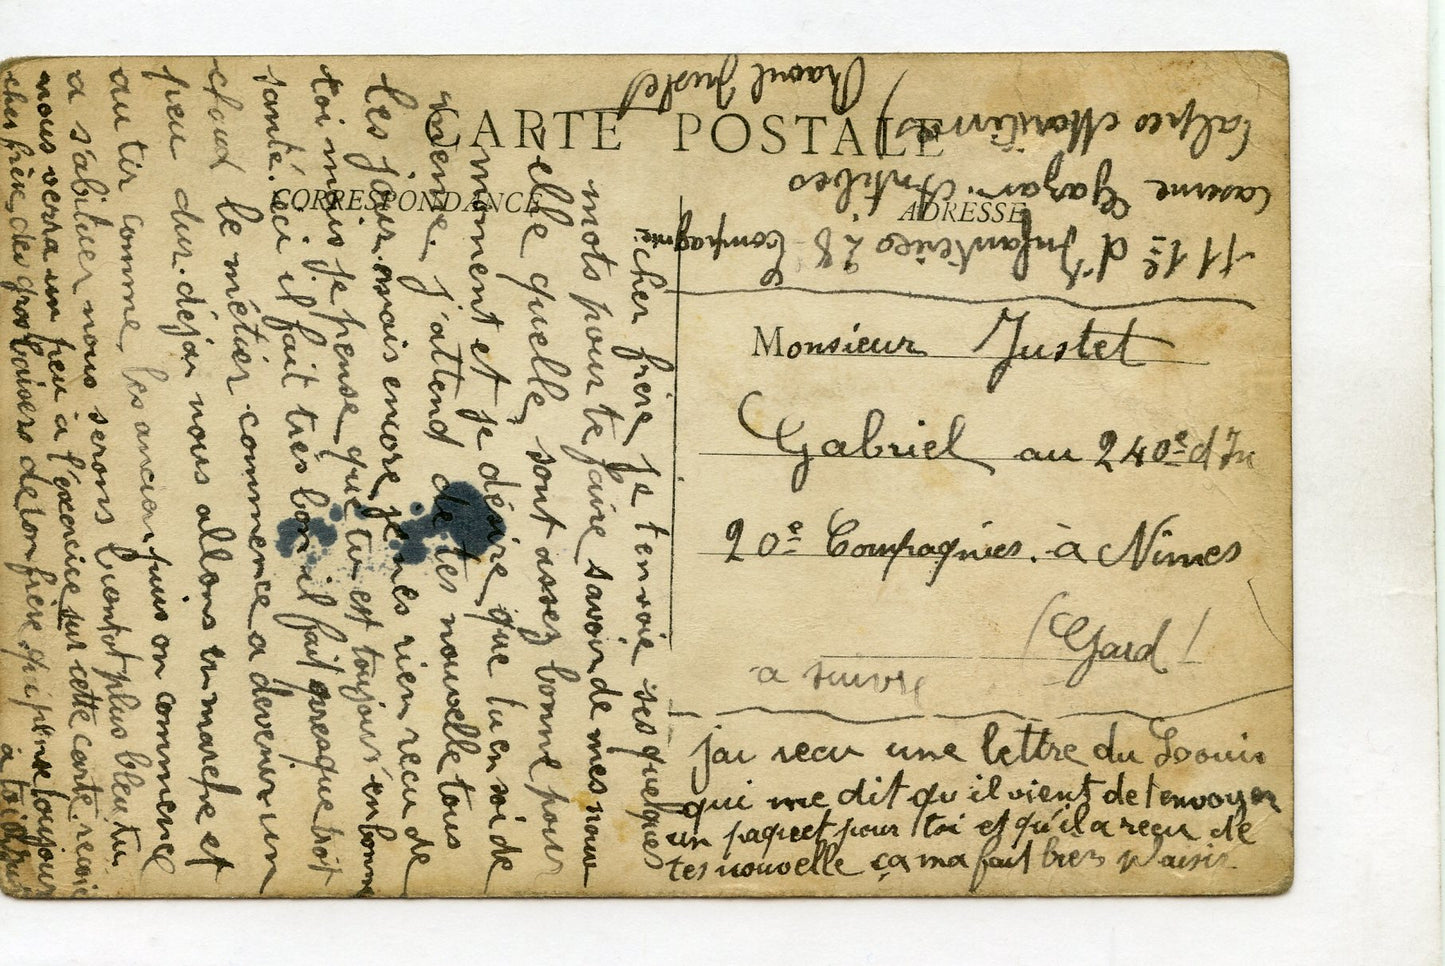 CARTE POSTALE
CORRESPONDANCE
ADRESSE
Raoul Justet
111e d'Infanterie 28 Compagnie
Caserne Gazan Antibes
Alpes Maritimes
Monsieur Justet
Gabriel au 240e d'In
20e Compagnies. à Nimes
(Gard)
a suivre
jai recu une lettre du Louis
qui me dit qu'il vient de t envoyer
un paqueet pour toi et qu'il a recu de
tes nouvelle ça ma fait bien plaisir
cher frère je tenvoie ses quelques
mots pour te faire savoir de mes nouv
elle quelle sont assez bonne pour
moment et je désire que tu en soi de
meme. j'attend de tes nouvelle tous
les jours. mais encore je nes rien recu de
toi mais je pense que tu est toujours en bonne
santé. ici il fait très bon il fait presque troit
chaud le métier commence a devenir un
peu dur. déja nous allons en marche et
au tir comme les ancien puis on commence
a s'abituer nous serons bientot plus bleu tu
nous verra un peu à l'exercice sur cette carte. recois
cher frère des gros baisers de ton frère qui pense toujours
à toi